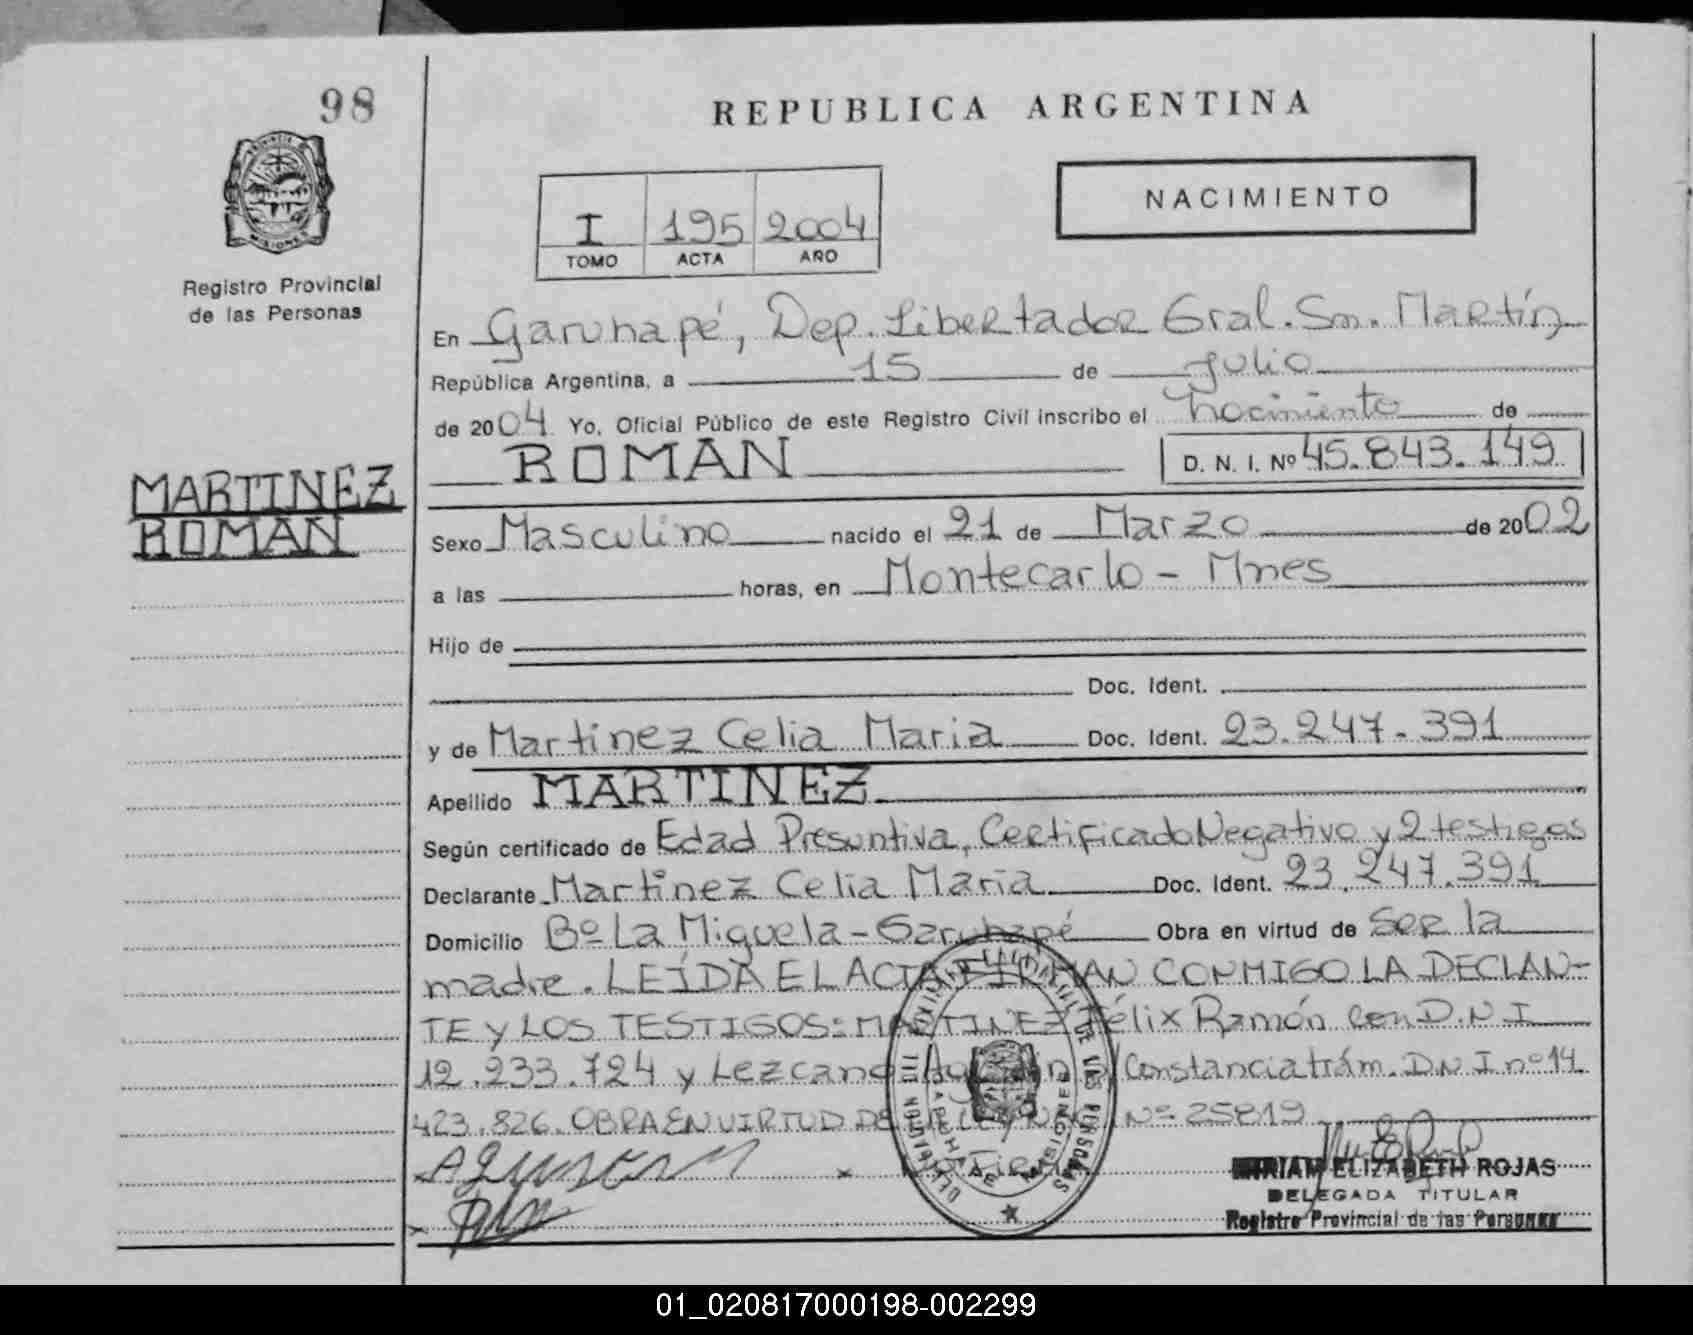 98
REPUBLICA ARGENTINA
MISIONES
Registro Provincial
de las Personas
I 195 2004
TOMO ACTA AÑO
NACIMIENTO
En Garuhapé, Dep. Libertador Gral. Sn. Martín
República Argentina, a 15 de Julio
de 2004 Yo, Oficial Público de este Registro Civil inscribo el nacimiento de
ROMAN D. N. I. Nº 45.843.149
MARTINEZ
ROMAN
Sexo Masculino nacido el 21 de Marzo de 2002
a las horas, en Montecarlo - Mnes
Hijo de
Doc. Ident.
y de Martinez Celia Maria Doc. Ident. 23.247.391
Apellido MARTINEZ
Según certificado de Edad Presuntiva, Certificado Negativo y 2 testigos
Declarante Martinez Celia Maria Doc. Ident. 23.247.391
Domicilio Bº La Miguela - Garuhapé Obra en virtud de Ser la
madre. LEÍDA EL ACTA FIRMAN CONMIGO LA DECLAN-
TE Y LOS TESTIGOS: MARTINEZ Félix Ramón con D.N.I
12.233.724 y Lezcano Constancia trám. D.N.I nº 14
423.826. OBRA EN VIRTUD DE Nº 25819
MIRIAM ELIZABETH ROJAS
DELEGADA TITULAR
Registro Provincial de las Personas
01_020817000198-002299